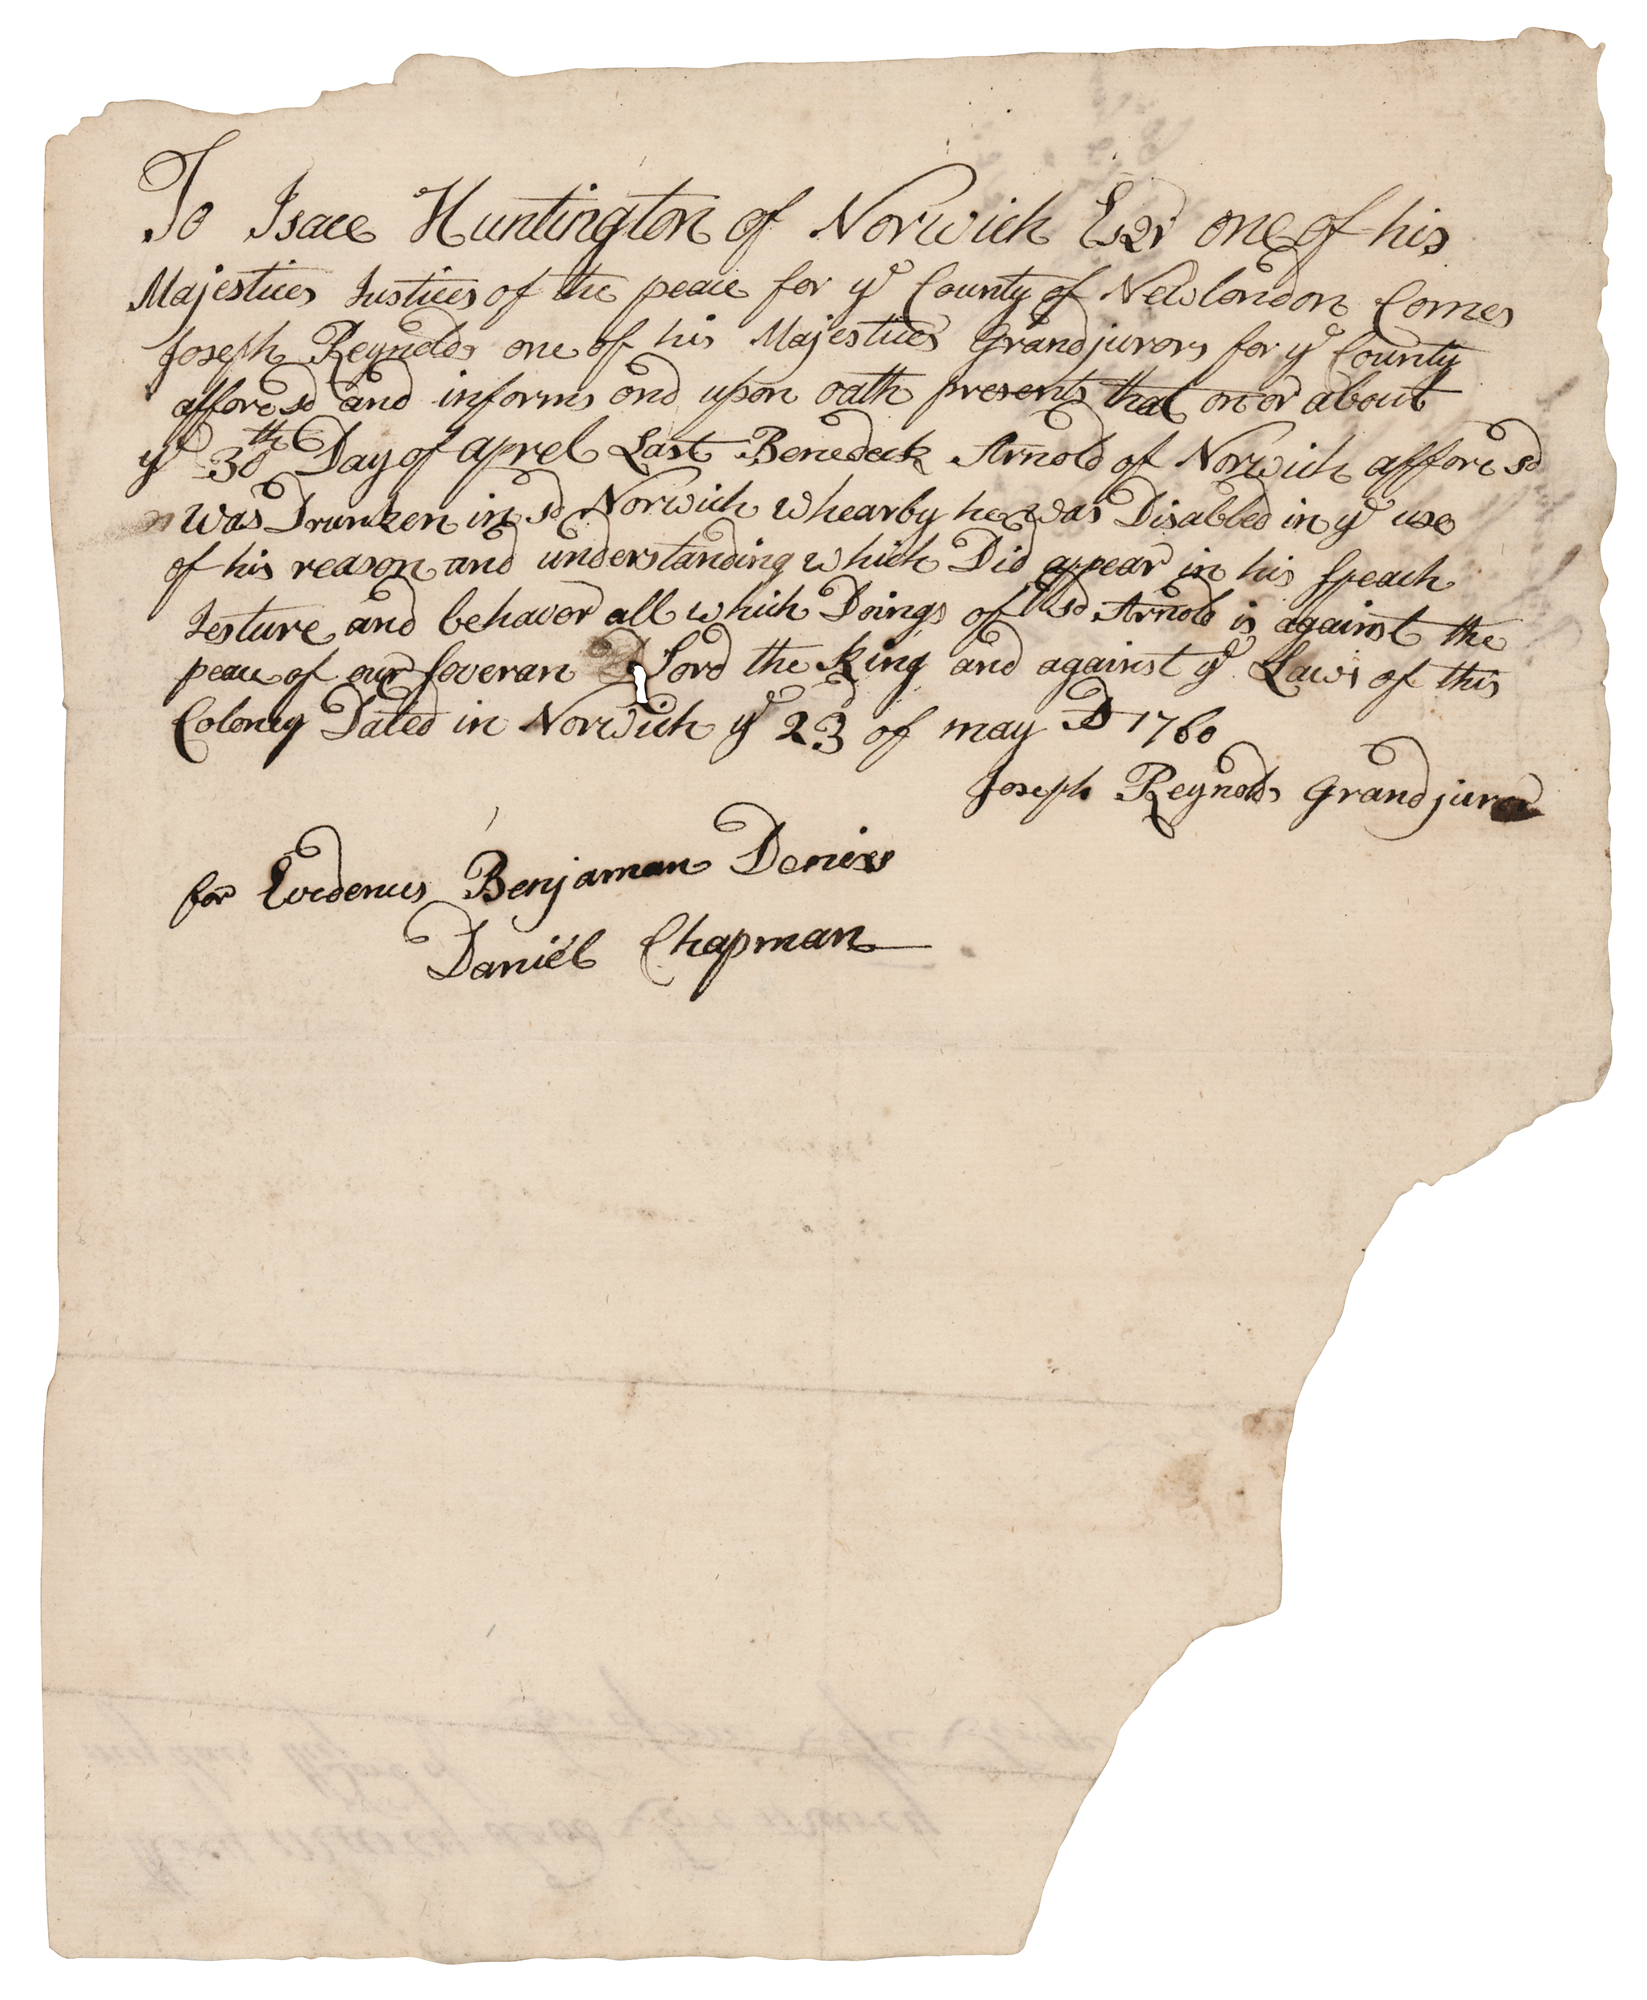 To Isace Huntington of Norwich Esqr one of his
Majestices Justices of the peace for ye County of Newlondon Comes
Joseph Reynolds one of his Majestices Grandjurors for ye County
affore sd and informs and upon oath presents that on or about
ye 30th Day of aprel Last Benedeck Arnold of Norwich affore sd
was Drunken in sd Norwich whearby he was Disabled in ye use
of his reason and understanding which Did appear in his Speach
Jesture and behavor all which Doings of ye sd Arnold is against the
peace of our Soveran Lord the King and against ye Laws of this
Coloney Dated in Norwich ye 23 of may D 1760
Joseph Reynolds Grandjuror
for Evedences Benjaman Deniss
Daniel Chapman